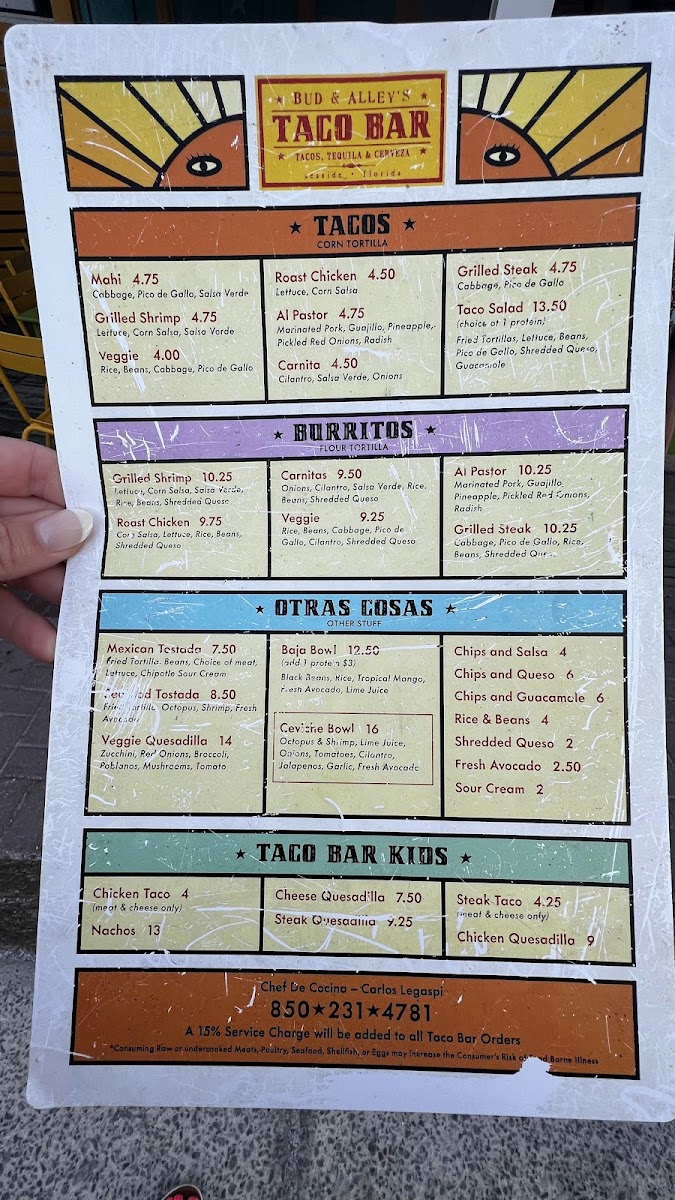 BUD & ALLEY'S
TACO BAR
TACOS, TEQUILA & CERVEZA
seaside • florida
TACOS
CORN TORTILLA
Mahi 4.75
Cabbage, Pico de Gallo, Salsa Verde
Grilled Shrimp 4.75
Lettuce, Corn Salsa, Salsa Verde
Veggie 4.00
Rice, Beans, Cabbage, Pico de Gallo
Roast Chicken 4.50
Lettuce, Corn Salsa
Al Pastor 4.75
Marinated Pork, Guajillo, Pineapple,
Pickled Red Onions, Radish
Carnita 4.50
Cilantro, Salsa Verde, Onions
Grilled Steak 4.75
Cabbage, Pico de Gallo
Taco Salad 13.50
(choice of 1 protein)
Fried Tortillas, Lettuce, Beans,
Pico de Gallo, Shredded Queso,
Guacamole
BURRITOS
FLOUR TORTILLA
Grilled Shrimp 10.25
Lettuce, Corn Salsa, Salsa Verde,
Rice, Beans, Shredded Queso
Roast Chicken 9.75
Corn Salsa, Lettuce, Rice, Beans,
Shredded Queso
Carnitas 9.50
Onions, Cilantro, Salsa Verde, Rice,
Beans, Shredded Queso
Veggie 9.25
Rice, Beans, Cabbage, Pico de
Gallo, Cilantro, Shredded Queso
Al Pastor 10.25
Marinated Pork, Guajillo,
Pineapple, Pickled Red Onions,
Radish
Grilled Steak 10.25
Cabbage, Pico de Gallo, Rice,
Beans, Shredded
OTRAS COSAS
OTHER STUFF
Mexican Tostada 7.50
Fried Tortilla, Beans, Choice of meat,
Lettuce, Chipotle Sour Cream
Tostada 8.50
Fried Tortilla, Octopus, Shrimp, Fresh
Avocado
Veggie Quesadilla 14
Zucchini, Red Onions, Broccoli,
Poblanos, Mushrooms, Tomato
Baja Bowl 12.50
(add 1 protein $3)
Black Beans, Rice, Tropical Mango,
Fresh Avocado, Lime Juice
Ceviche Bowl 16
Octopus & Shrimp, Lime Juice,
Onions, Tomatoes, Cilantro,
Jalapenos, Garlic, Fresh Avocado
Chips and Salsa 4
Chips and Queso 6
Chips and Guacamole 6
Rice & Beans 4
Shredded Queso 2
Fresh Avocado 2.50
Sour Cream 2
TACO BAR KIDS
Chicken Taco 4
(meat & cheese only)
Nachos 13
Cheese Quesadilla 7.50
Steak Quesadilla 9.25
Steak Taco 4.25
(meat & cheese only)
Chicken Quesadilla 9
Chef De Cocina – Carlos Legaspi
850★231★4781
A 15% Service Charge will be added to all Taco Bar Orders
*Consuming Raw or undercooked Meats, Poultry, Seafood, Shellfish, or Eggs may Increase the Consumer's Risk of Food Borne Illness